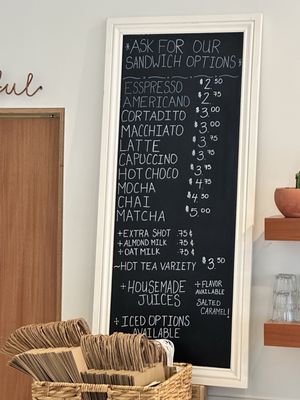 *ASK FOR OUR
SANDWICH OPTIONS*
ESSPRESO $2.50
AMERICANO $2.75
CORTADITO $3.00
MACCHIATO $3.00
LATTE $3.75
CAPUCCINO $3.75
HOT CHOCO $3.75
MOCHA $4.75
CHAI $4.50
MATCHA $5.00
+EXTRA SHOT .75¢
+ALMOND MILK .75¢
+OAT MILK .75¢
~HOT TEA VARIETY $3.50
+HOUSEMADE
JUICES
+FLAVOR
AVAILABLE
SALTED
CARAMEL!
+ICED OPTIONS
AVAILABLE